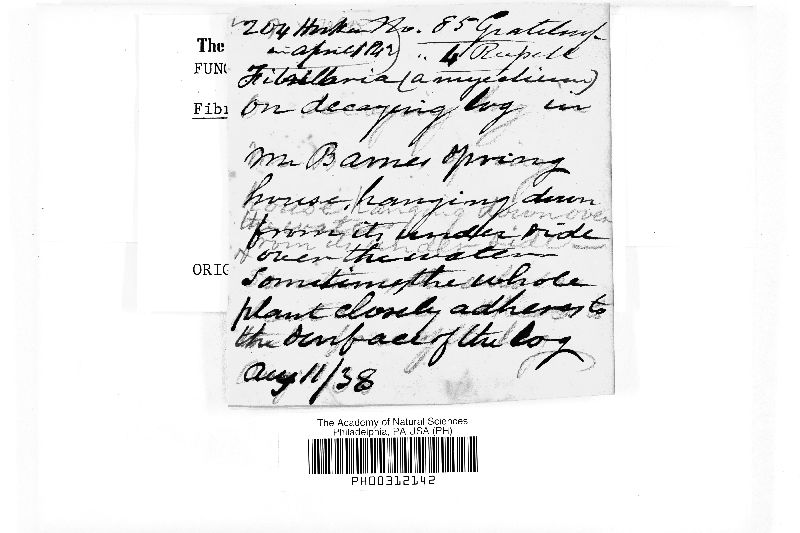 204 No. 85
in april 1842) " 4
Fibrillaria (a mycelium)
on decaying log in
Mr Barnes spring
house, hanging down
from its under side
& over the water
Sometimes the whole
plant closely adheres to
the surface of the log
Aug 11/38
The
FUNG
Fibr
ORIG
The Academy of Natural Sciences
Philadelphia, PA USA (PH)
PH00312142